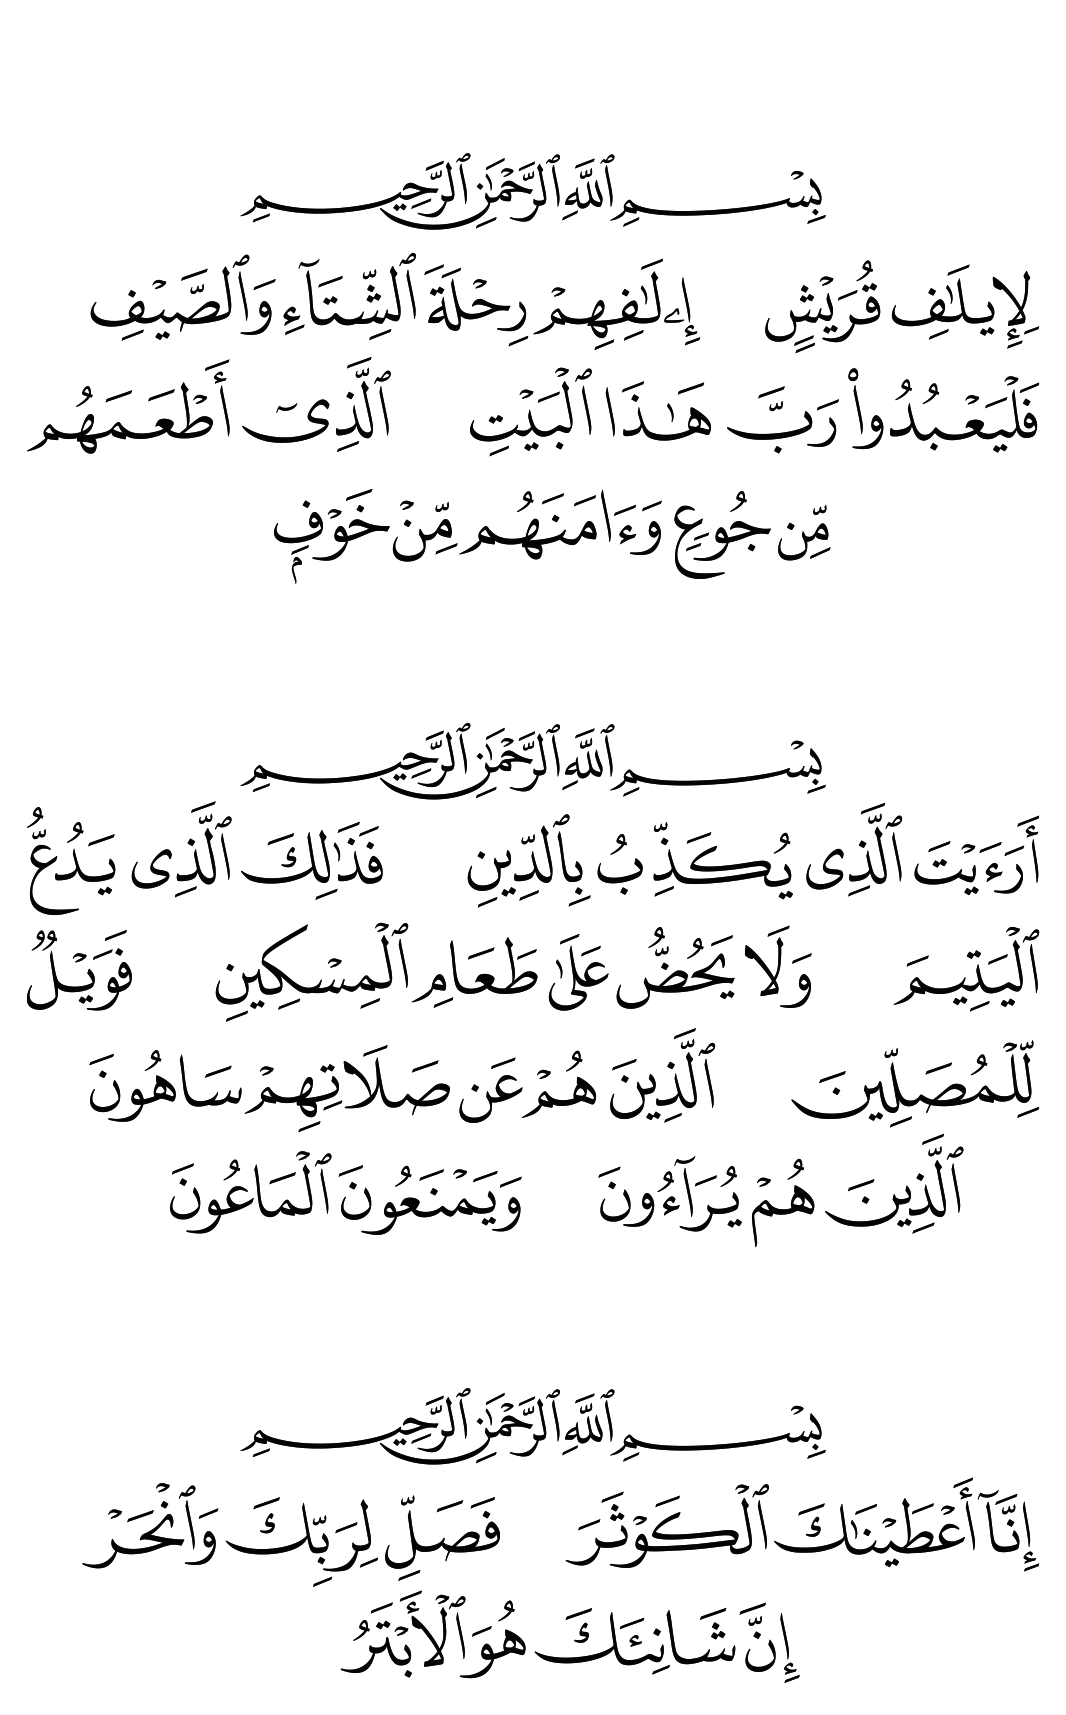 بِسْمِ ٱللَّهِ ٱلرَّحْمَٰنِ ٱلرَّحِيمِ
لِإِيلَٰفِ قُرَيْشٍ إِۦلَٰفِهِمْ رِحْلَةَ ٱلشِّتَآءِ وَٱلصَّيْفِ
فَلْيَعْبُدُوا۟ رَبَّ هَٰذَا ٱلْبَيْتِ ٱلَّذِىٓ أَطْعَمَهُم
مِّن جُوعٍ وَءَامَنَهُم مِّنْ خَوْفٍۭ
بِسْمِ ٱللَّهِ ٱلرَّحْمَٰنِ ٱلرَّحِيمِ
أَرَءَيْتَ ٱلَّذِى يُكَذِّبُ بِٱلدِّينِ فَذَٰلِكَ ٱلَّذِى يَدُعُّ
ٱلْيَتِيمَ وَلَا يَحُضُّ عَلَىٰ طَعَامِ ٱلْمِسْكِينِ فَوَيْلٌ
لِّلْمُصَلِّينَ ٱلَّذِينَ هُمْ عَن صَلَاتِهِمْ سَاهُونَ
ٱلَّذِينَ هُمْ يُرَآءُونَ وَيَمْنَعُونَ ٱلْمَاعُونَ
بِسْمِ ٱللَّهِ ٱلرَّحْمَٰنِ ٱلرَّحِيمِ
إِنَّآ أَعْطَيْنَٰكَ ٱلْكَوْثَرَ فَصَلِّ لِرَبِّكَ وَٱنْحَرْ
إِنَّ شَانِئَكَ هُوَ ٱلْأَبْتَرُ